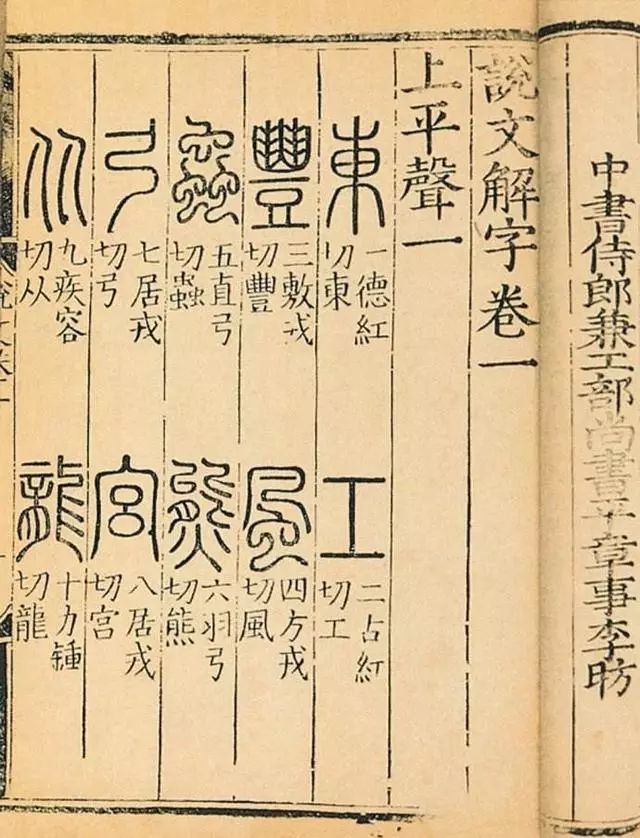 中書侍郎兼工部尚書平章事李昉
說文解字卷一
上平聲一
東
一德紅
切東
工
二占紅
切工
豐
三敷戎
切豐
風
四方戎
切風
蟲
五直弓
切蟲
熊
六羽弓
切熊
弓
七居戎
切弓
宮
八居戎
切宮
从
九疾容
切从
龍
十力鍾
切龍